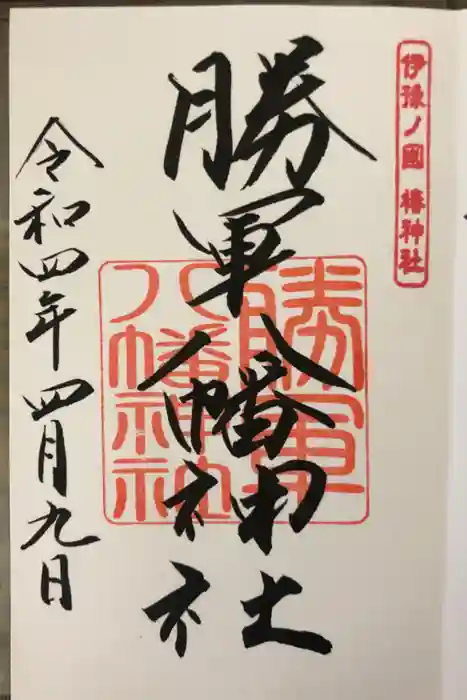 伊豫ノ國 椿神社
勝軍八幡神社
勝軍
八幡神社
令和四年四月九日